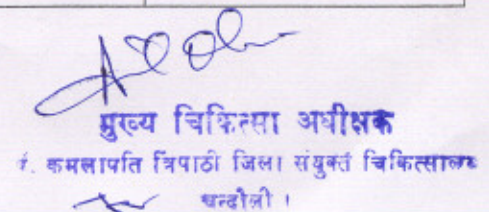 मुख्य चिकित्सा अधीक्षक
पं. कमलापति त्रिपाठी जिला संयुक्त चिकित्सालय
चन्दौली ।